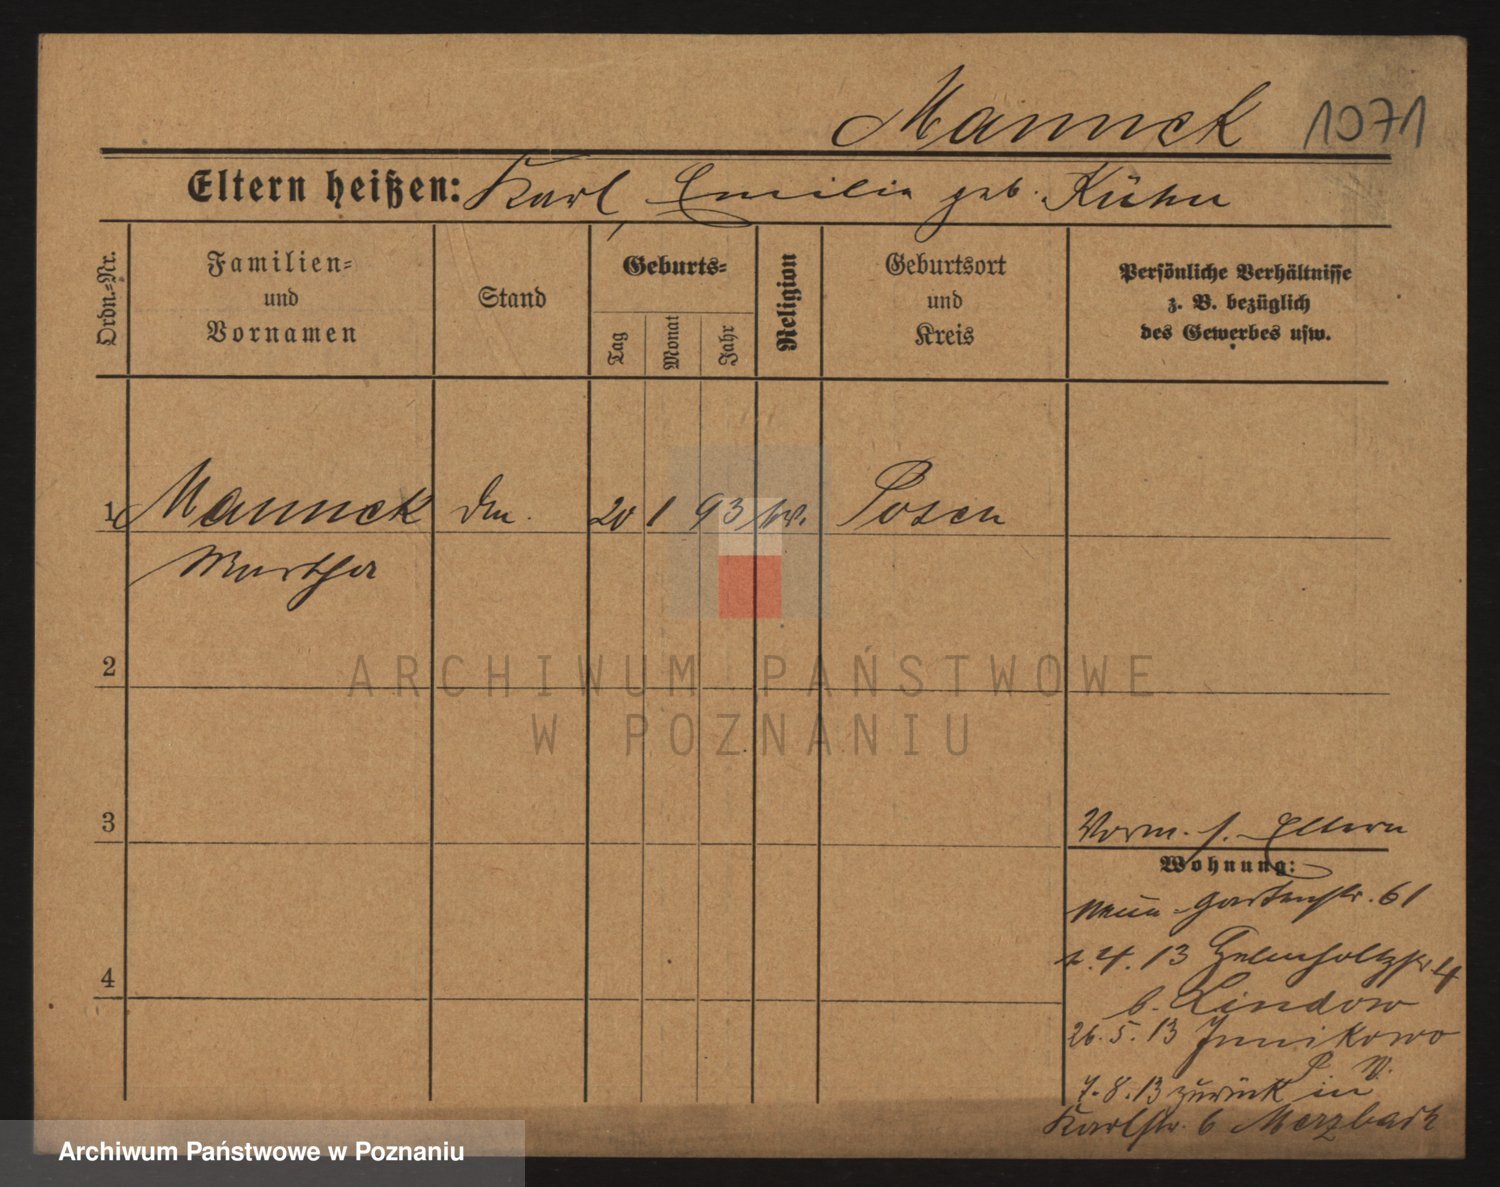 Mannck 1071
Eltern heißen: Karl Emilia geb. Kühn
Ordn.-Nr.
Familien-
und
Vornamen
Stand
Geburts-
Tag
Monat
Jahr
Religion
Geburtsort
und
Kreis
Persönliche Verhältnisse
z. B. bezüglich
des Gewerbes usw.
1 Mannck 20 1 93 Posen
Martha
2
ARCHIWUM PAŃSTWOWE
W POZNANIU
3
Vorm. s. Eltern
Wohnung:
Neue Gartenstr. 61
4. 13 Helmholtzstr 4
4
b. Lindow
26. 5. 13 Junikowo
P. W.
7. 8. 13 zurück in
Karlstr. b Merzbach
Archiwum Państwowe w Poznaniu